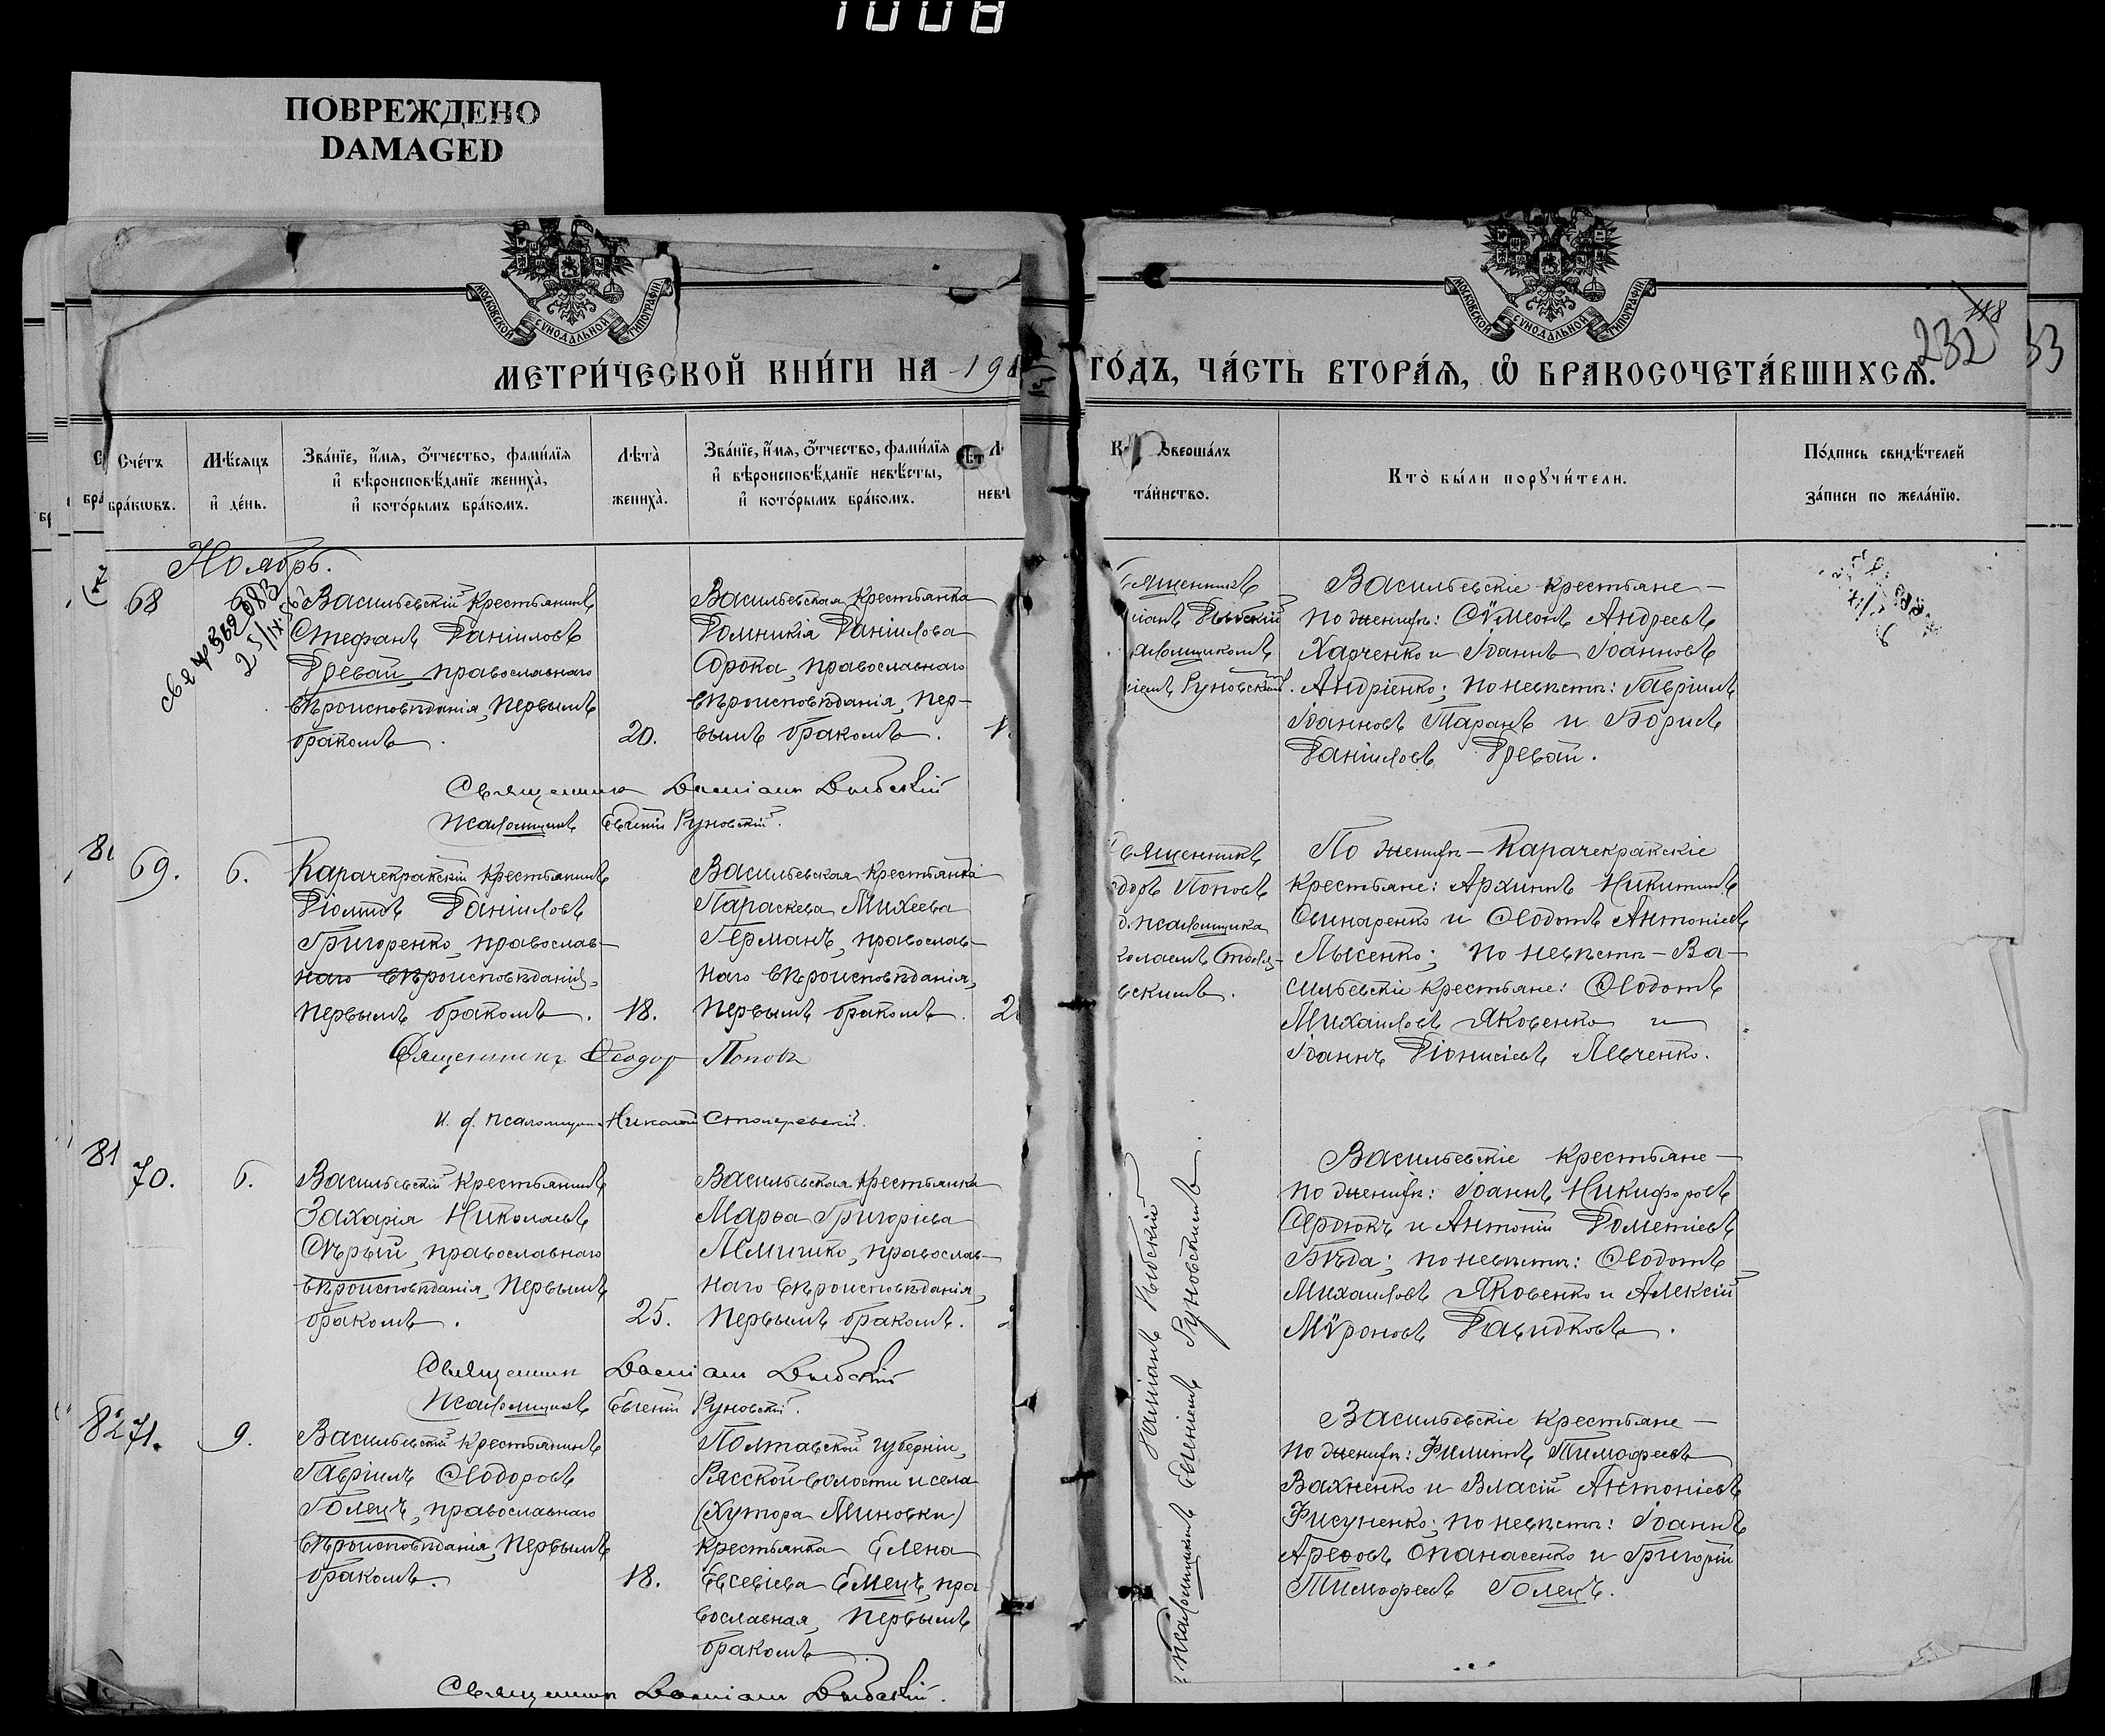 1008
ПОВРЕЖДЕНО
DAMAGED
МОСКОВСКОЙ СѴНОДАЛЬНОЙ ТИПОГРАФІИ
МОСКОВСКОЙ СѴНОДАЛЬНОЙ ТИПОГРАФІИ
118
232
33
МЕТРИ́ЧЕСКОЙ КНИ́ГИ НА 191
ГО́ДЪ, ЧА́СТЬ ВТОРА́Ѧ, Ѡ БРАКОСОЧЕТА́ВШИХСѦ.
Сче́тъ
бра́кѡвъ.
Мѣ́сяцъ
и҆ де́нь.
Зва́нїе, и҆́мя, ѻ҆́тчество, фами́лїя
и҆ вѣроисповѣ́данїе жениха̀,
и҆ кото́рымъ бра́комъ.
Лѣта̀
жениха̀.
Зва́нїе, и҆́мя, ѻ҆́тчество, фами́лїя
и҆ вѣроисповѣ́данїе невѣ́сты,
и҆ кото́рымъ бра́комъ.
та́инство.
Кто̀ бы́ли порꙋчи́тели.
По́дпись свидѣ́телей
за́писи по жела́нїю.
Ноябрь.
68
25/IX
Васильевскій крестьянинъ
Стефанъ Даніиловъ
Древаи, православнаго
вѣроисповѣданія, первымъ
бракомъ.
20.
Васильевская крестьянка
Домникія Даніилова
Сорока, православнаго
вѣроисповѣданія, пер-
вымъ бракомъ.
Руновскій.
Васильевскіе крестьяне —
по женихѣ: Сѵмеонъ Андреевъ
Харченко и Іоаннъ Іоанновъ
Андріенко; по невѣстѣ: Гавріилъ
Іоанновъ Таранъ и Борисъ
Даніиловъ Древаи.
Священникъ Даміанъ Дыбскій
Псаломщикъ Евгеній Руновскій.
69.
6.
Карачекракскій крестьянинъ
Даніиловъ
Григоренко, православ-
наго вѣроисповѣданія,
первымъ бракомъ.
18.
Васильевская крестьянка
Параскева Михеева
Германъ, православ-
наго вѣроисповѣданія,
первымъ бракомъ.
Поповъ
псаломщика
вскимъ.
По женихѣ — Карачекракскіе
крестьяне: Архиппъ Никитинъ
Свинаренко и Ѳеодотъ Антоніевъ
Лысенко; по невѣстѣ — Ва-
сильевскіе крестьяне: Ѳеодотъ
Михаиловъ Яковенко и
Іоаннъ Діонисіевъ Левченко.
Священникъ Ѳеодоръ Поповъ
И. д. псаломщика Николай
81
70.
6.
Васильевскій крестьянинъ
Захарія Николаевъ
Сѣрый, православнаго
вѣроисповѣданія, первымъ
бракомъ.
25.
Васильевская крестьянка
Марѳа Григоріева
Лемишко, православ-
наго вѣроисповѣданія,
первымъ бракомъ.
Даміанъ Дыбскій
псаломщикъ Евгеніемъ Руновскимъ
Васильевскіе крестьяне —
по женихѣ: Іоаннъ Никифоровъ
Сердюкъ и Антоній Дометіевъ
Бѣда; по невѣстѣ: Ѳеодотъ
Михаиловъ Яковенко и Алексій
Мѵроновъ Давидковъ.
Священникъ Даміанъ Дыбскій
Псаломщикъ Евгеній Руновскій.
82
71.
9.
Васильевскій крестьянинъ
Гавріилъ Ѳеодоровъ
Голецъ, православнаго
вѣроисповѣданія, первымъ
бракомъ.
18.
Полтавской губерніи,
Рясской волости и села
(Хутора Миновки)
крестьянка Елена
Евсевіева Емецъ, пра
вославная, первымъ
бракомъ.
Васильевскіе крестьяне —
по женихѣ: Филиппъ Тимофеевъ
Вахненко и Власій Антоніевъ
Фисуненко; по невѣстѣ: Іоаннъ
Арефовъ Опанасенко и Григорій
Тимофеевъ Голецъ.
Священникъ Даміанъ Дыбскій.